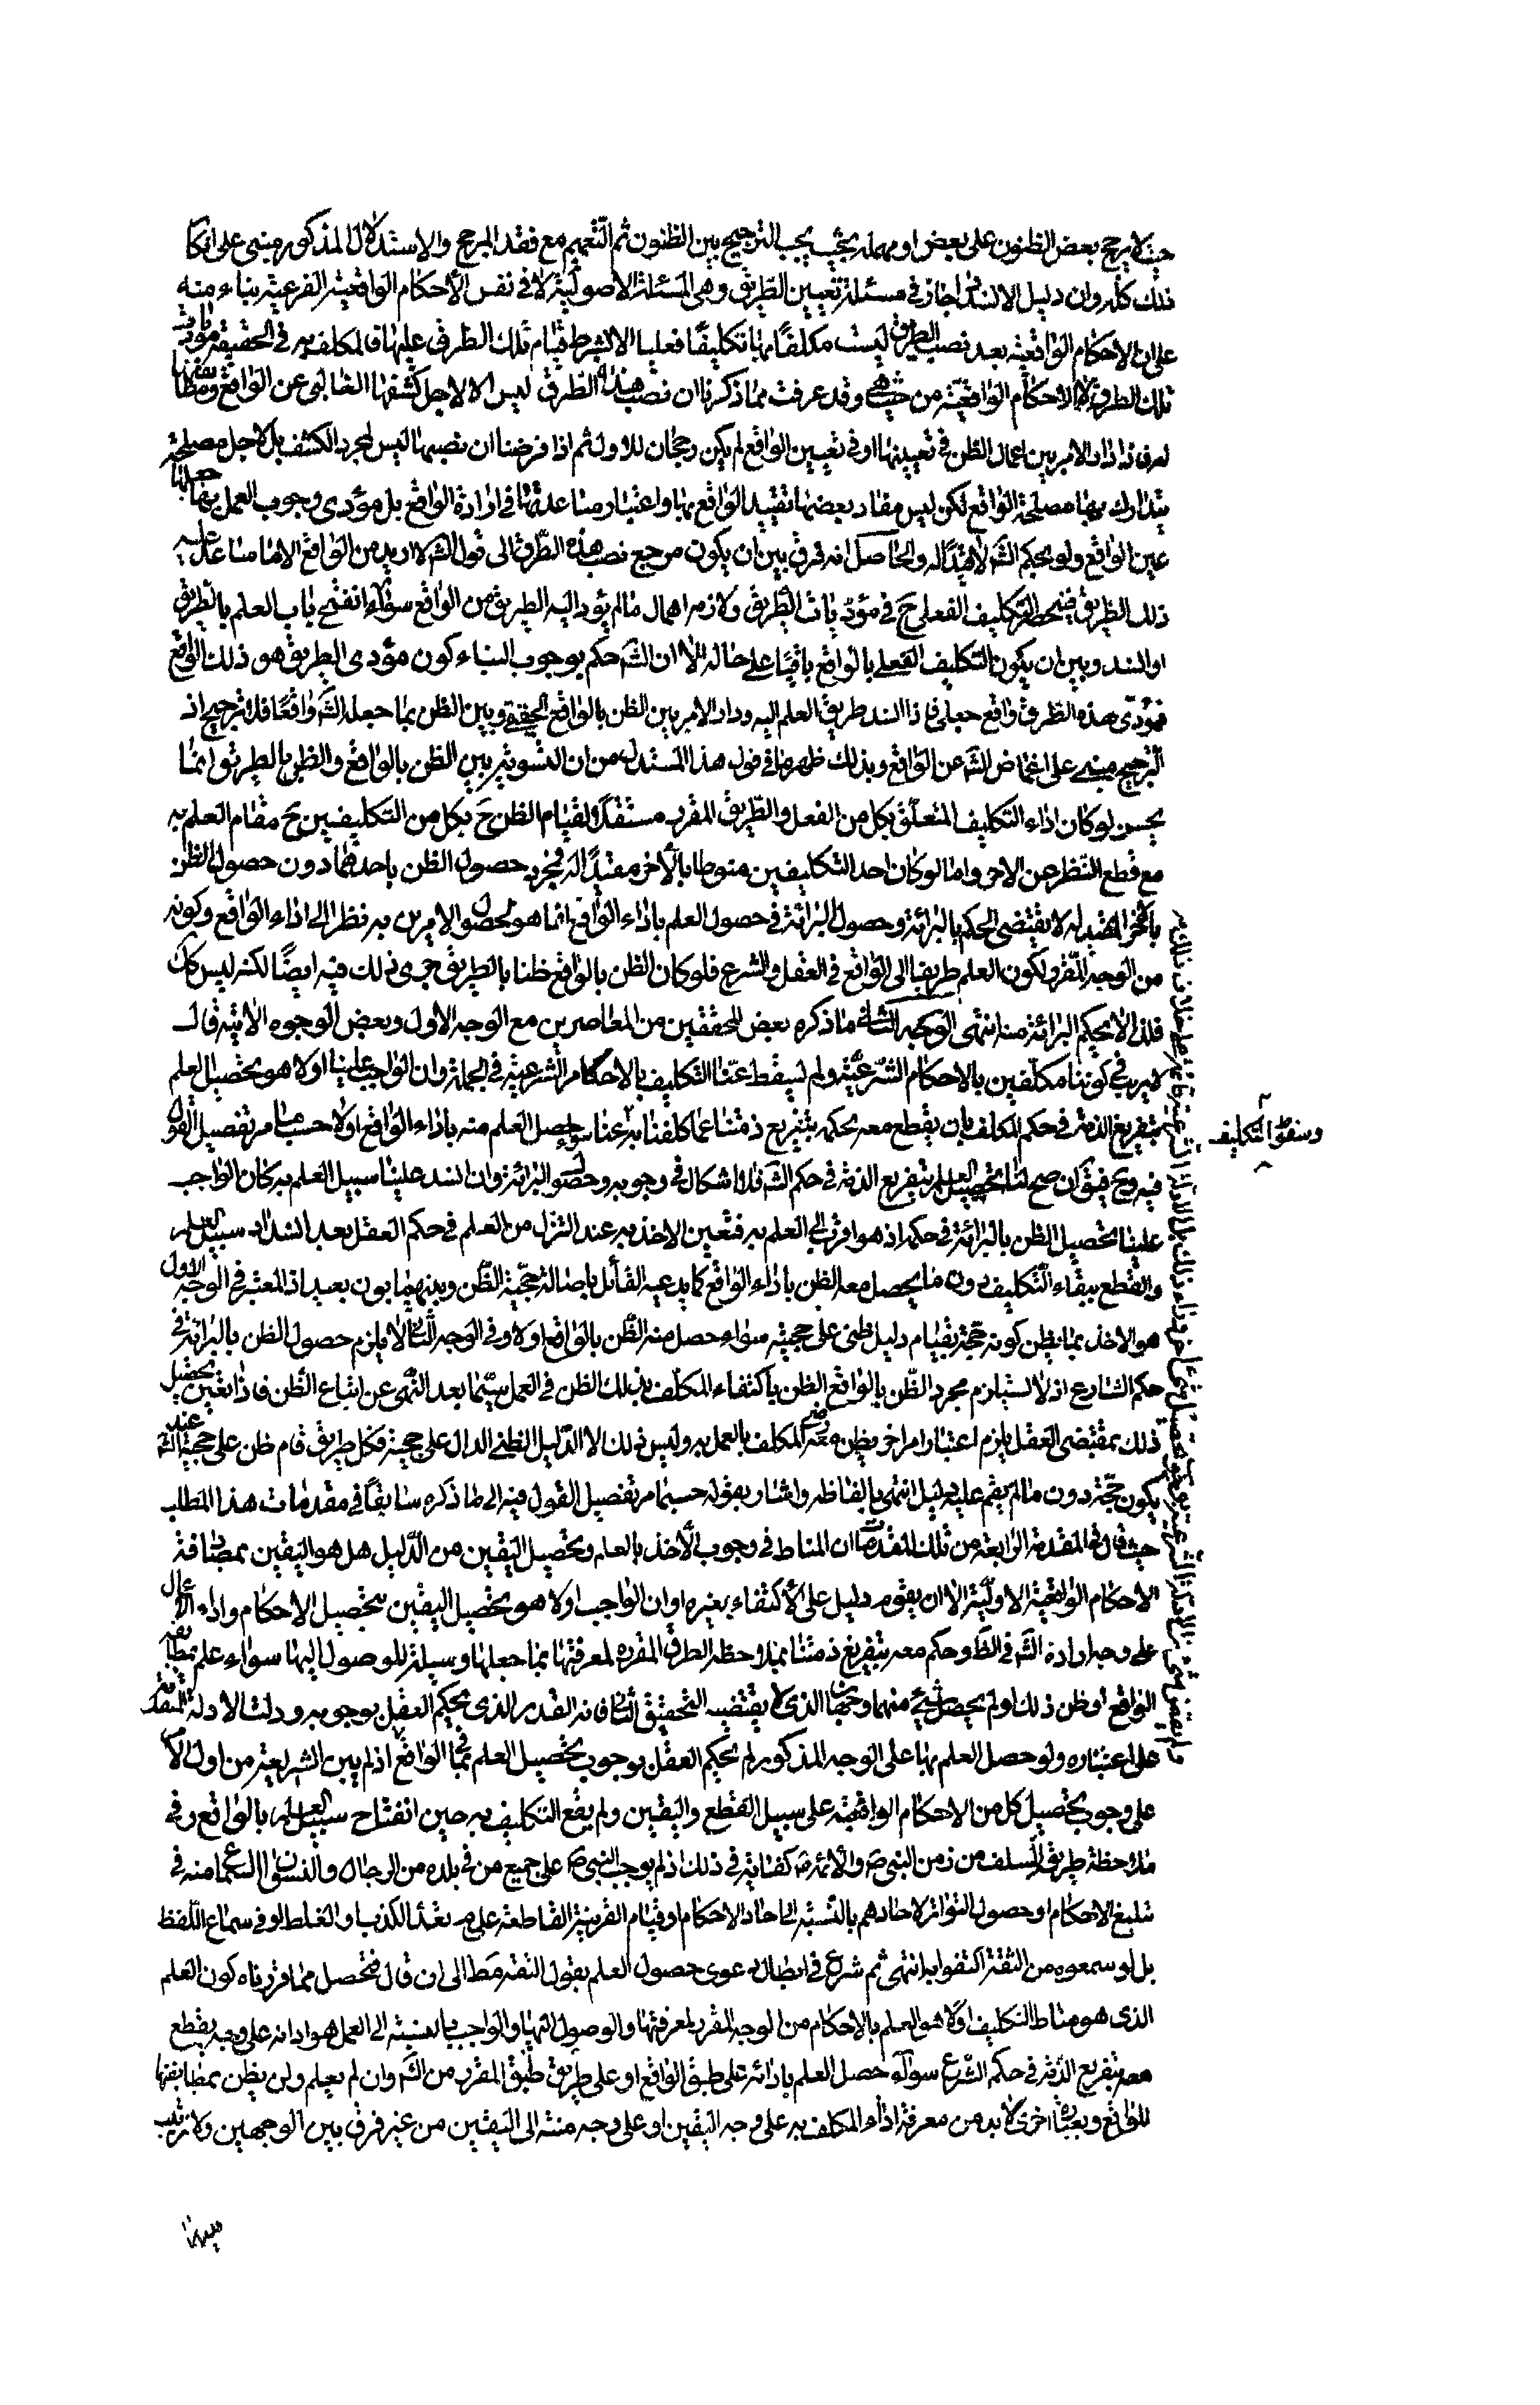 حيث لا يرجح بعض الظنون على بعض او مهملة بحيث يجب الترجيح بين الظنون ثم التعميم مع فقد المرجح والاستدلال المذكور مبنى على انكار
ذلك كله وان دليل الانسداد جار في مسئلة تعيين الطريق وهى المسئلة الاصولية لا في نفس الأحكام الواقعية الفرعية بناء منه
على ان الاحكام الواقعية بعد نصب الطرق ليست مكلفا بها تكليفا فعليا الا بشرط قيام تلك الطرق عليها فالمكلف به في الحقيقة مؤديات
تلك الطرق لا الاحكام الواقعية من حيث هى وقد عرفت مما ذكرنا ان نصب هذه الطرق ليس الا لاجل كشفها الغالبى عن الواقع ومطابقتها
له فاذا دار الامر بين اعمال الظن في تعيينها او في تعيين الواقع لم يكن رجحان للاول ثم اذا فرضنا ان نصبها ليس لمجرد الكشف بل لاجل مصلحة
يتدارك بها مصلحة الواقع لكن ليس مفاد نصبها تقييد الواقع بها واعتبار مساعدتها في ارادة الواقع بل مؤدى وجوب العمل بها جعلها
عين الواقع ولو بحكم الش لا قيدا له والحاصل انه فرق بين ان يكون مرجع نصب هذه الطرق الى قول الش لا اريد من الواقع الا ما ساعد عليه
ذلك الطريق فينحصر التكليف الفعلى ح في مؤديات الطريق ولازمه اهمال ما لم يؤد اليه الطريق من الواقع سواء انفتح باب العلم بالطريق
او انسد وبين ان يكون التكليف الفعلى بالواقع باقيا على حاله الا ان الش حكم بوجوب البناء كون مؤدى الطريق هو ذلك الواقع
فمؤدى هذه الطرق واقع جعلى فاذا انسد طريق العلم اليه ودار الامر بين الظن بالواقع الحقيقى وبين الظن بما جعله الش واقعا فلا ترجيح اذ
الترجيح مبنى على اغماض الش عن الواقع وبذلك ظهر ما في قول هذا المستدل من ان التسوية بين الظن بالواقع والظن بالطريق انما
يحسن لو كان اداء التكليف المتعلق بكل من الفعل والطريق المقرر مستقلا لقيام الظن ح بكل من التكليفين ح مقام العلم به
مع قطع النظر عن الاخر واما لو كان احد التكليفين منوطا بالآخر مقيدا له فمجرد حصول الظن باحدهما دون حصول الظن
بالآخر المقيد له لا يقتضى الحكم بالبرائة وحصول البرائة في حصول العلم باداء الواقع انما هو لحصول الامرين به نظرا الى اداء الواقع وكونه
من الوجه المقرر لكون العلم طريقا الى الواقع في العقل والشرع فلو كان الظن بالواقع ظنا بالطريق جرى ذلك فيه ايضا لكنه ليس كك
فلذا لا يحكم البرائة منه انتهى الوجه الثانى ما ذكره بعض المحققين من المعاصرين مع الوجه الاول وبعض الوجوه الاتية قال
لا ريب في كوننا مكلفين بالاحكام الشرعية ولم يسقط عنا التكليف بالاحكام الشرعية في الجملة وان الواجب علينا اولا هو تحصيل العلم
بتفريغ الذمة في حكم المكلف بان يقطع معه بحكمه بتفريع ذمتنا عما كلفنا به
وسقوط التكليف
عنا سواء حصل العلم منه باداء الواقع اولا حسب ما مر تفصيل القول
فيه وح فيق ان صح لنا تحصيل العلم بتفريغ الذمة في حكم الش فلا اشكال في وجوبه وحصول البرائة وان انسد علينا سبيل العلم به كان الواجب
علينا تحصيل الظن بالبرائة في حكمه اذ هو اقرب الى العلم به فتعين الاخذ به عند التنزل من العلم في حكم العقل بعد انسداد سبيل العلم
والقطع ببقاء التكليف دون ما يحصل معه الظن باداء الواقع كما يدعيه القائل باصالة حجية الظن وبينهما بون بعيد اذ المعتبر في الوجه الاول
هو الاخذ بما يظن كونه حجة بقيام دليل ظنى على حجيته سواء حصل منه الظن بالواقع اولا وفي الوجه الثانى لا يلزم حصول الظن بالبرائة في
حكم الشارع اذ لا يستلزم مجرد الظن بالواقع الظن باكتفاء المكلف بذلك الظن في العمل سيما بعد النهى عن اتباع الظن فاذا تعين تحصيل
ذلك بمقتضى العقل يلزم اعتبار امر اخر يظن معه رضى المكلف بالعمل به وليس ذلك الا الدليل الظنى الدال على حجيته فكل طريق قام ظن على حجيته عند الش
يكون حجة دون ما لم يقم عليه دليل انتهى بالفاظه واشار بقوله حسبما مر تفصيل القول فيه الى ما ذكره سابقا في مقدمات هذا المطلب
حيث قال في المقدمة الرابعة من تلك المقدمات ان المناط في وجوب الأخذ بالعلم وتحصيل اليقين من الدليل هل هو اليقين بمصادفة
الاحكام الواقعية الاولية الا ان يقوم دليل على الأكتفاء بغيره او ان الواجب اولا هو تحصيل اليقين بتحصيل الاحكام واداء الاعمال
على وجه اراده الش في الظ وحكم معه بتفريغ ذمتنا بملاحظة الطرق المقررة لمعرفتها بما جعلها وسيلة للوصول اليها سواء علم بمطابقته
الواقع او ظن ذلك او لم يحصل شئ منهما وجهان الذى يقتضيه التحقيق الثانى فانه القدر الذى يحكم العقل بوجوبه ودلت الادلة المتقدمة
على اعتباره ولو حصل العلم بها على الوجه المذكور لم يحكم العقل بوجوب تحصيل العلم بما في الواقع
اذ لم يبن الشريعة من اول الأمر
على وجوب تحصيل كل من الاحكام الواقعية على سبيل القطع واليقين ولم يقع التكليف به حين انفتاح سبيل العلم بالواقع وفي
ملاحظة طريق السلف من زمن النبى ص والأئمة ع كفاية في ذلك اذ لم يوجب النبى ص على جميع من في بلده من الرجال والنسوان السماع منه في
تبليغ الاحكام او حصول التواتر لاحادهم بالنسبة الى احاد الاحكام او قيام القرينة القاطعة على عدم تعمد الكذب او الغلط او في سماع اللفظ
بل لو سمعوه من الثقة اكتفوا به انتهى ثم شرع في ابطال دعوى حصول العلم بقول الثقة مط الى ان قال فتحصل مما قررناه كون العلم
الذى هو مناط التكليف اولا هو العلم بالاحكام من الوجه المقرر لمعرفتها والوصول اليها والواجب بالنسبة الى العمل هو ادائه على وجه يقطع
معه بتفريغ الذمة في حكم الشرع سواء حصل العلم بادائه على طبق الواقع او على طبق الطريق المقرر من الش وان لم يعلم ولن يظن بمطابقتها
للواقع وبعبارة اخرى لا بد من معرفة اداء المكلف به على وجه اليقين او على وجه منته الى اليقين من غير فرق بين الوجهين ولا ترتيب
بينهما